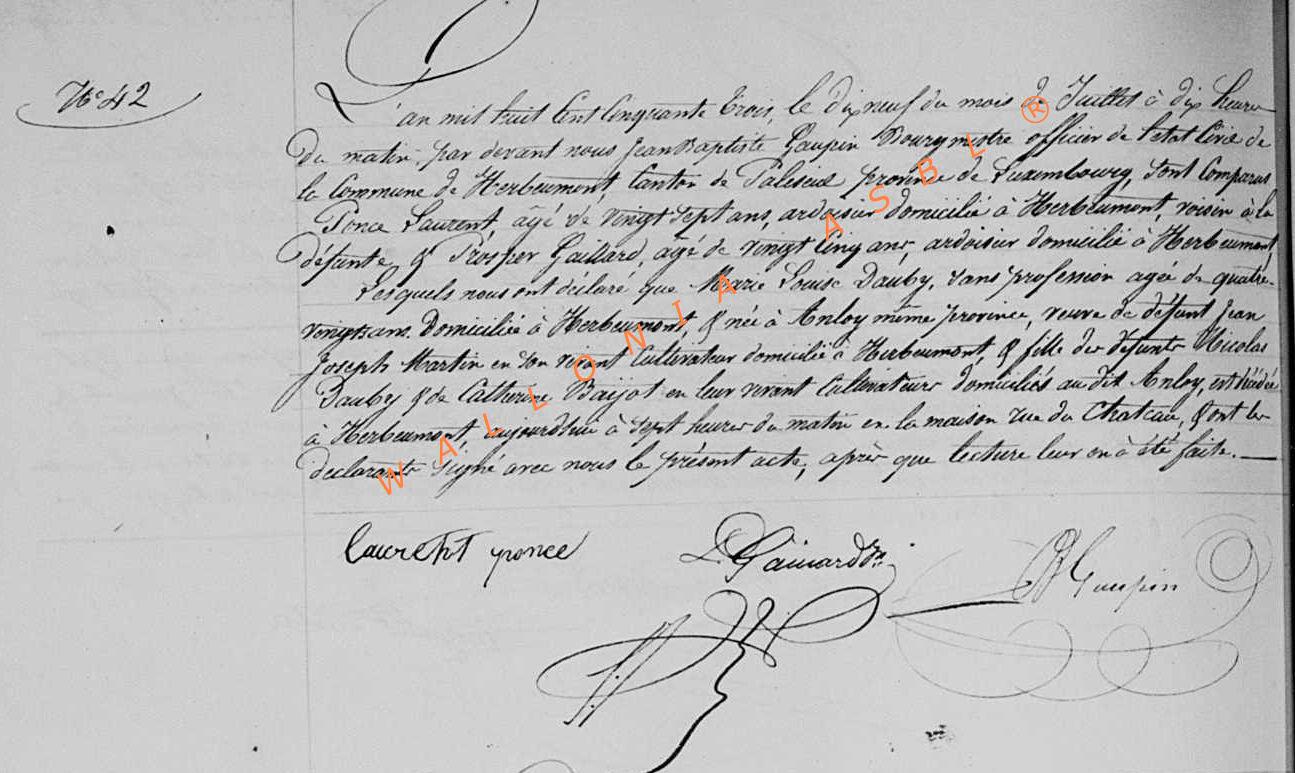 N° 42
L'an mil huit Cent Cinquante Trois, le dix neuf du mois de Juillet à dix heures
du matin, par devant nous Jean Baptiste Gaupin Bourgmestre officier de l'état Civil de
la Commune de Herbeumont, Canton de Paliseul province de Luxembourg, sont Comparus
Ponce Laurent, agé de vingt sept ans, ardoisier domicilié à Herbeumont, voisin à la
défunte, & Prosper Gaillard, agé de vingt Cinq ans, ardoisier domicilié à Herbeumont
Lesquels nous ont déclaré que Marie Louise Dauby, sans profession agée de quatre-
vingts ans. Domiciliée à Herbeumont, & née à Anloy même province, veuve de défunt Jean
Joseph Martin en son vivant Cultivateur domicilié à Herbeumont, & fille des défunts Nicolas
Dauby & de Catherine Baijot en leur vivant Cultivateurs domiciliés au dit Anloy, est décédée
à Herbeumont, aujourdhui à sept heures du matin en la maison rue du Chateau, & ont les
déclarants signé avec nous le présent acte, après que lecture leur en à été faite.
Laurent ponce
Gaillard
Gaupin
WALLONIA ASBL ®